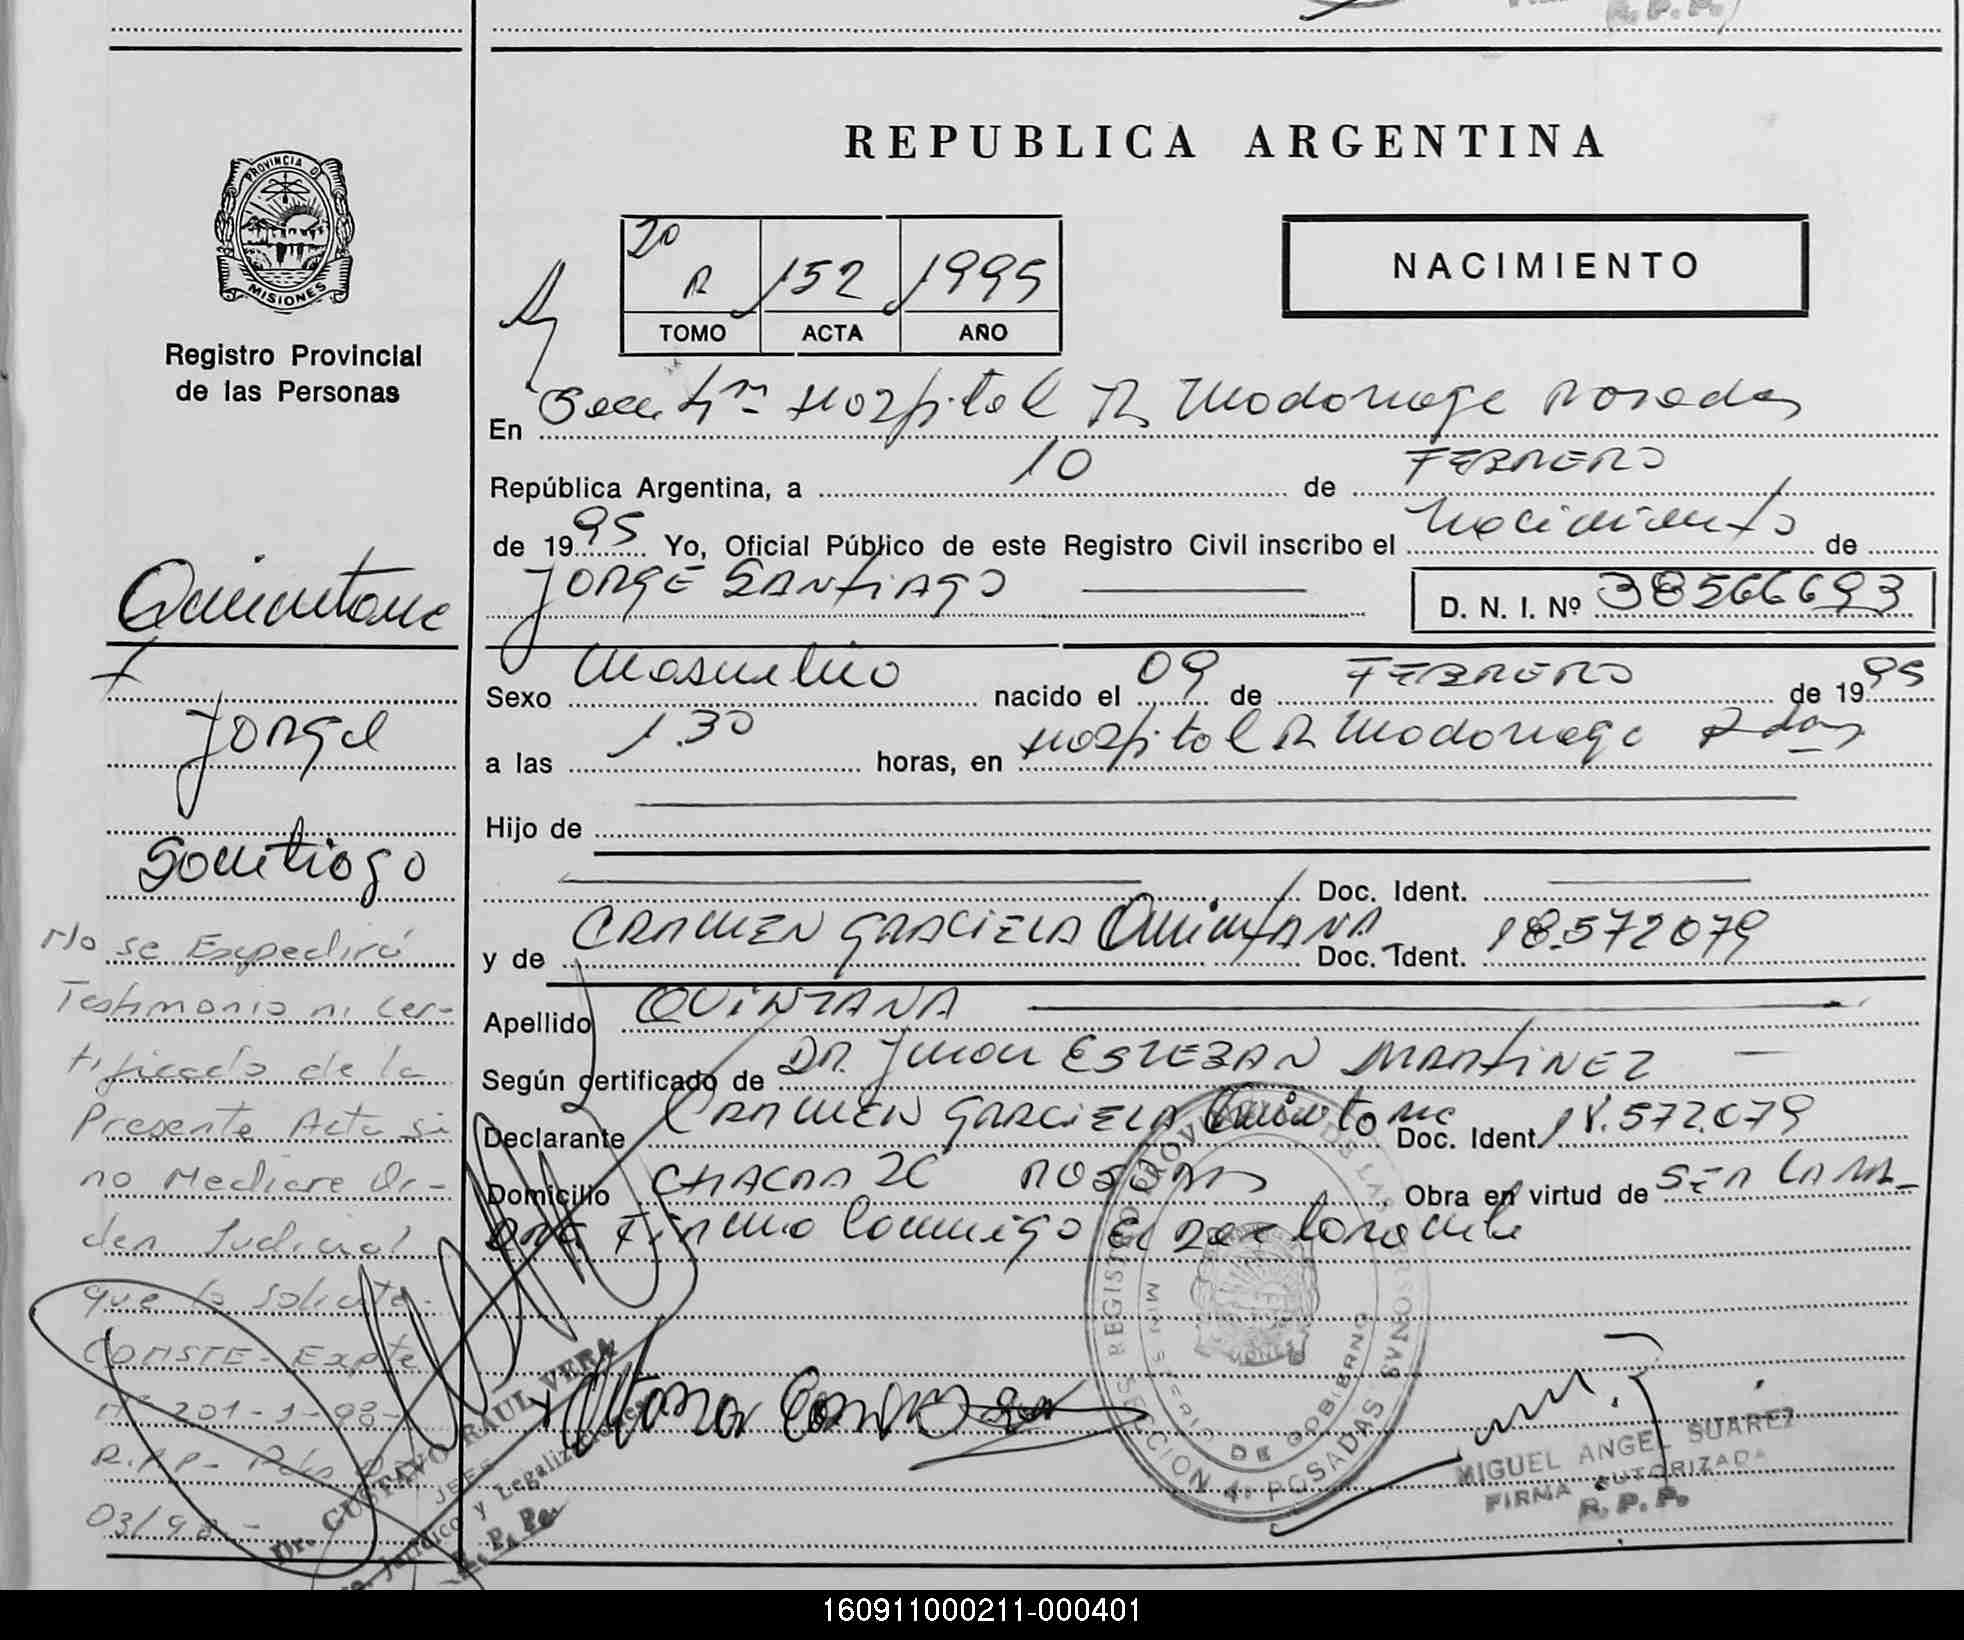 REPUBLICA ARGENTINA
PROVINCIA D
MISIONES
Registro Provincial
de las Personas
20
R 152 1995
TOMO ACTA AÑO
NACIMIENTO
En Hospital R Madariaga Posadas
República Argentina, a 10 de FEBRERO
de 1995 Yo, Oficial Público de este Registro Civil inscribo el Nacimiento de
JORGE SANTIAGO
D. N. I. Nº 38566693
Quintana
Jorge
Santiago
Sexo Masculino nacido el 09 de FEBRERO de 1995
a las 1.30 horas, en Hospital R Madariaga Pdas
Hijo de
Doc. Ident.
y de CARMEN GRACIELA QuintANA Doc. Ident. 18.572079
Apellido QUINTANA
Según certificado de DR. Juan ESTEBAN MARTINEZ
Declarante CARMEN GRACIELA Quintana Doc. Ident. 18.572.079
Domicilio CHACRA POSADAS Obra en virtud de
Firma Conmigo el declarante
No se Expedirá
Testimonio ni Cer-
tificado de la
Presente Acta si
no Mediare Or-
den Judicial
que lo Solicite.
CONSTE - Expte
Nº 201-1-98-
03/98.-
Dr. GUSTAVO RAUL VERA
JEFE
Jurídico y Legalizaciones
R. P. P.
REGISTRO PROVINCIAL DE LAS PERSONAS
MINISTERIO DE GOBIERNO
SECCION 4ª POSADAS
MIGUEL ANGEL SUAREZ
FIRMA AUTORIZADA
R. P. P.
160911000211-000401